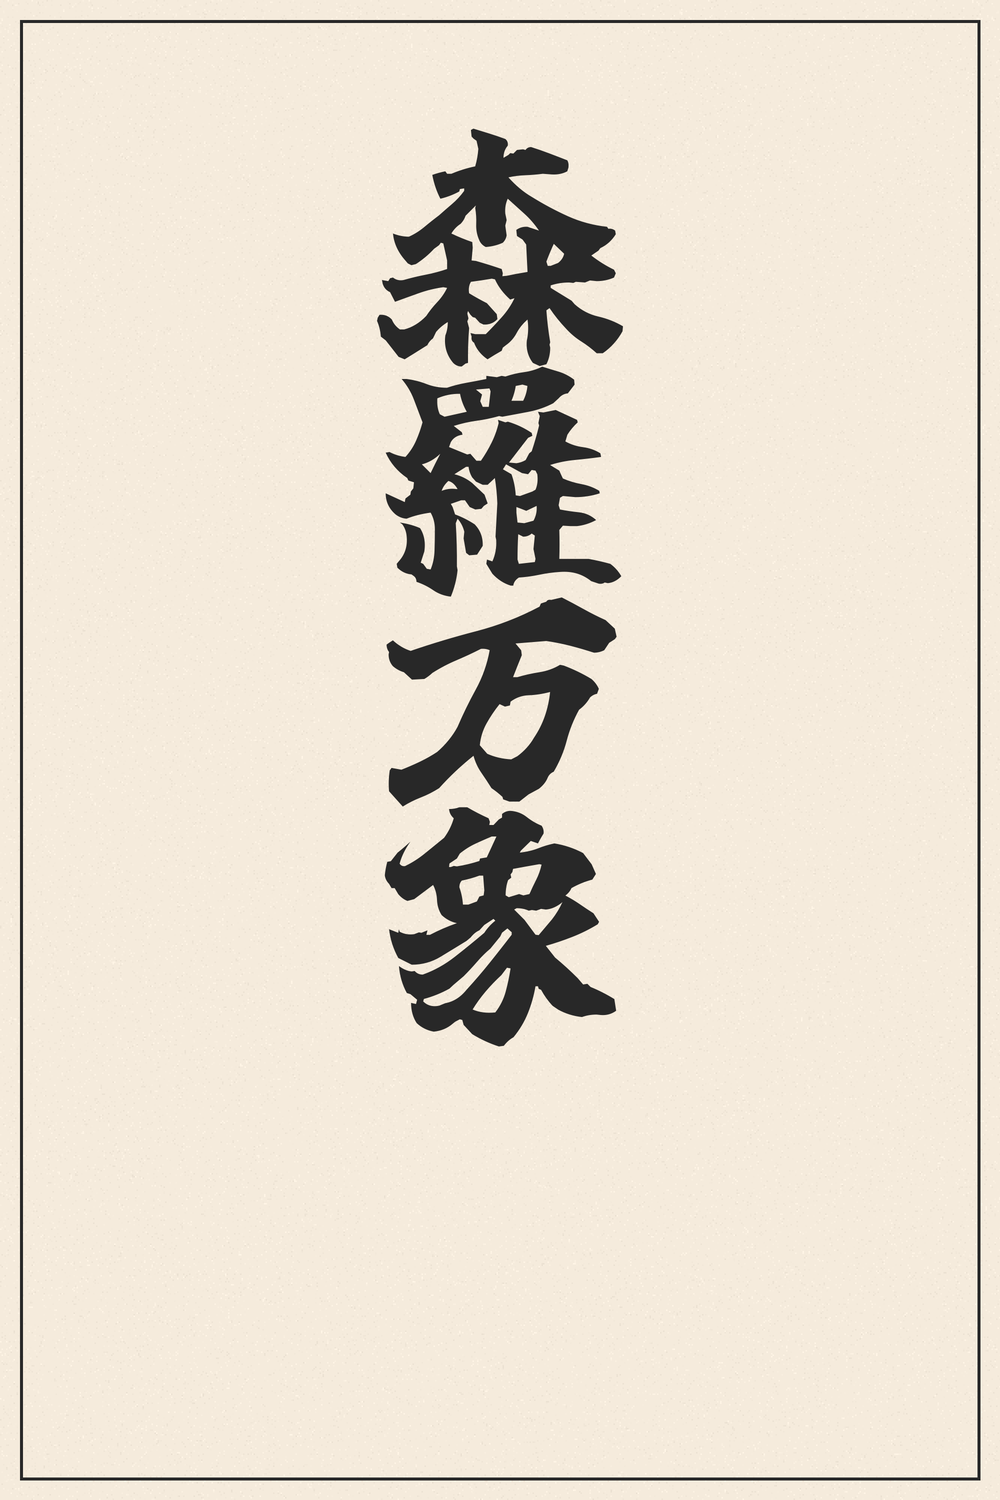 森羅万象